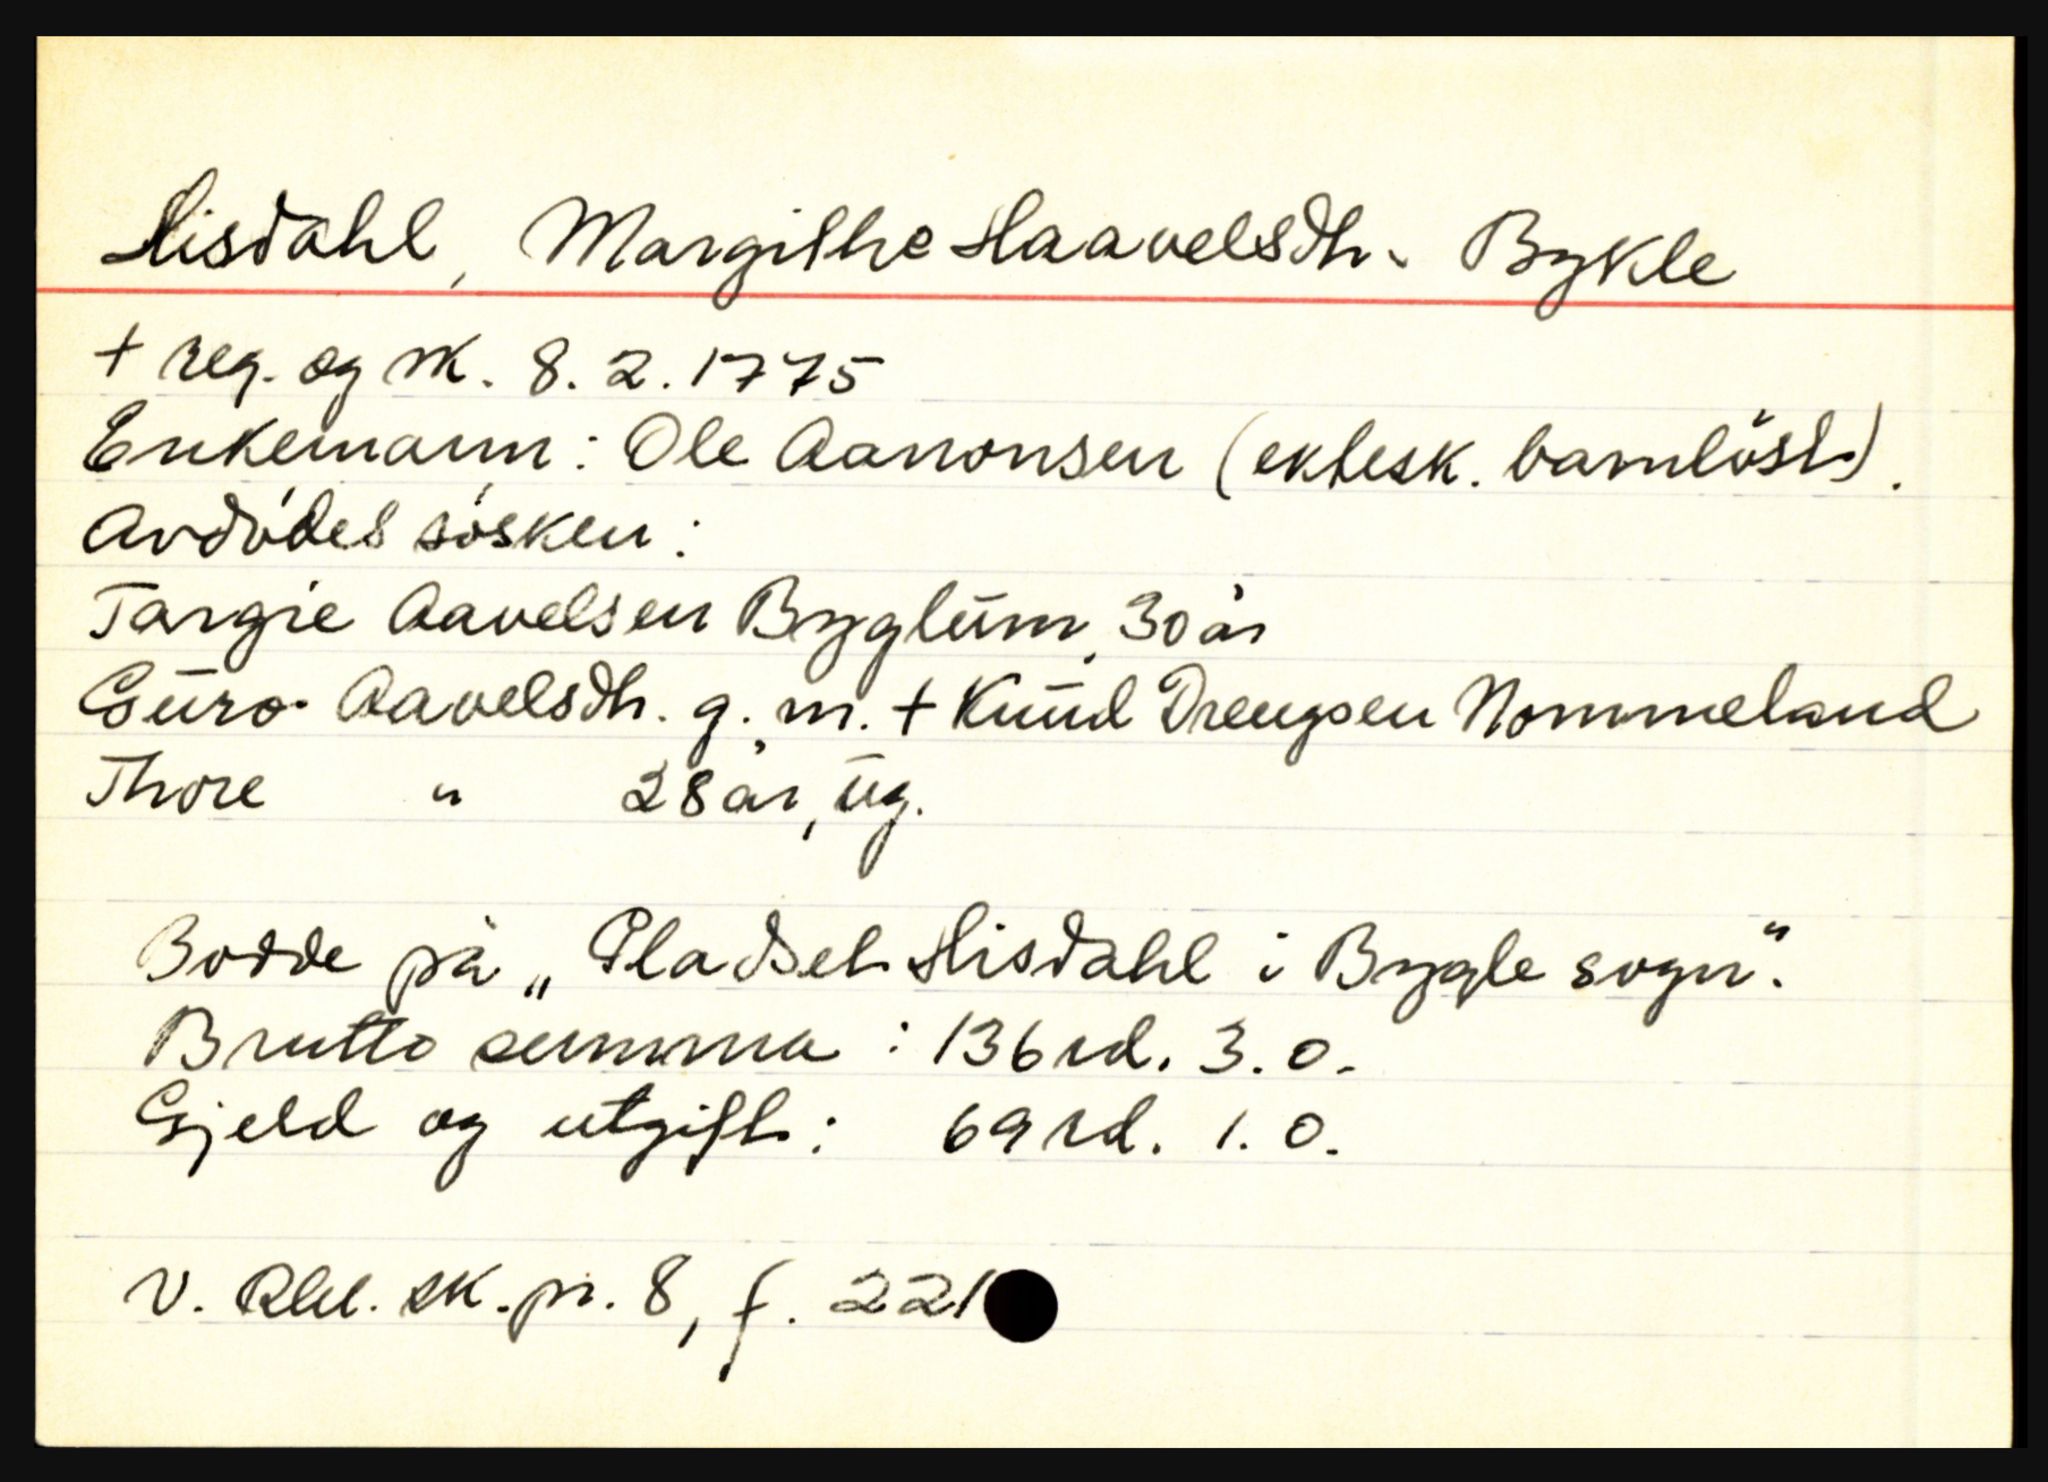 Hisdahl, Margithe Haavelsdtr. Bykle
+ reg. og sk. 8.2.1775
Enkemann: Ole Aanonsen (ektesk. barnløst).
Avdødes søsken:
Targie Aavelsen Byglum, 30 år
Guro Aavelsdtr. g.m. + Knud Drengsen Nommeland
Thore " 28 år, ug.
Bodde på „Pladset Hisdahl i Bygle sogn".
Brutto summa : 136 rd. 3.0.
Gjeld og utgift: 69 rd. 1.0.
V. Rbl. sk.pr. 8, f. 221